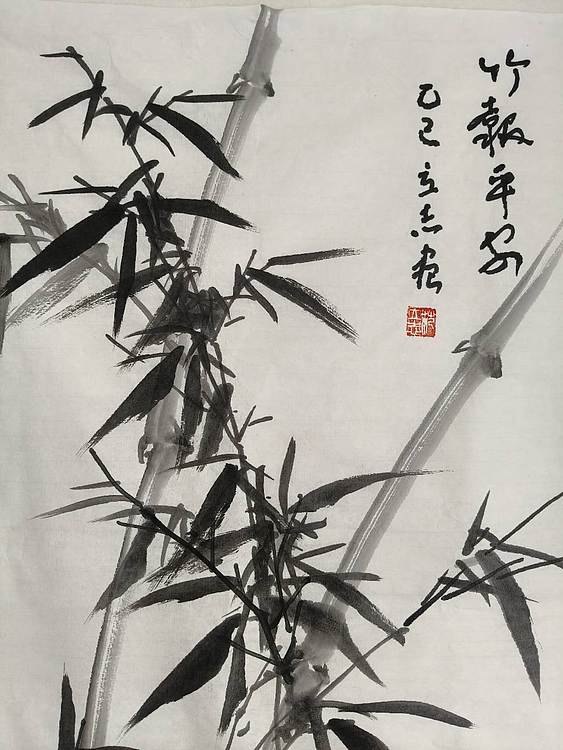 竹報平安
乙巳立志畫